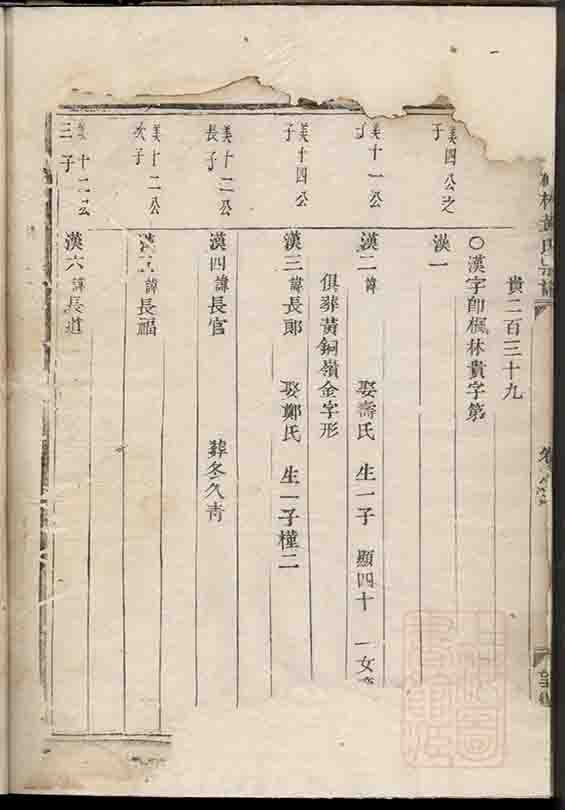 林黃氏宗譜
貴二百三十九
○漢字卽楓林貴字第
美四公之
子
漢一
美十一公
子
漢二 諱 娶壽氏 生一子 顯四十 一女
俱葬黃銅嶺金字形
美十四公
子
漢三 諱長郎 娶鄭氏 生一子 槿二
美十二公
長子
漢四 諱長官 葬冬久靑
美十二公
次子
漢五 諱長福
美十二公
三子
漢六 諱長道